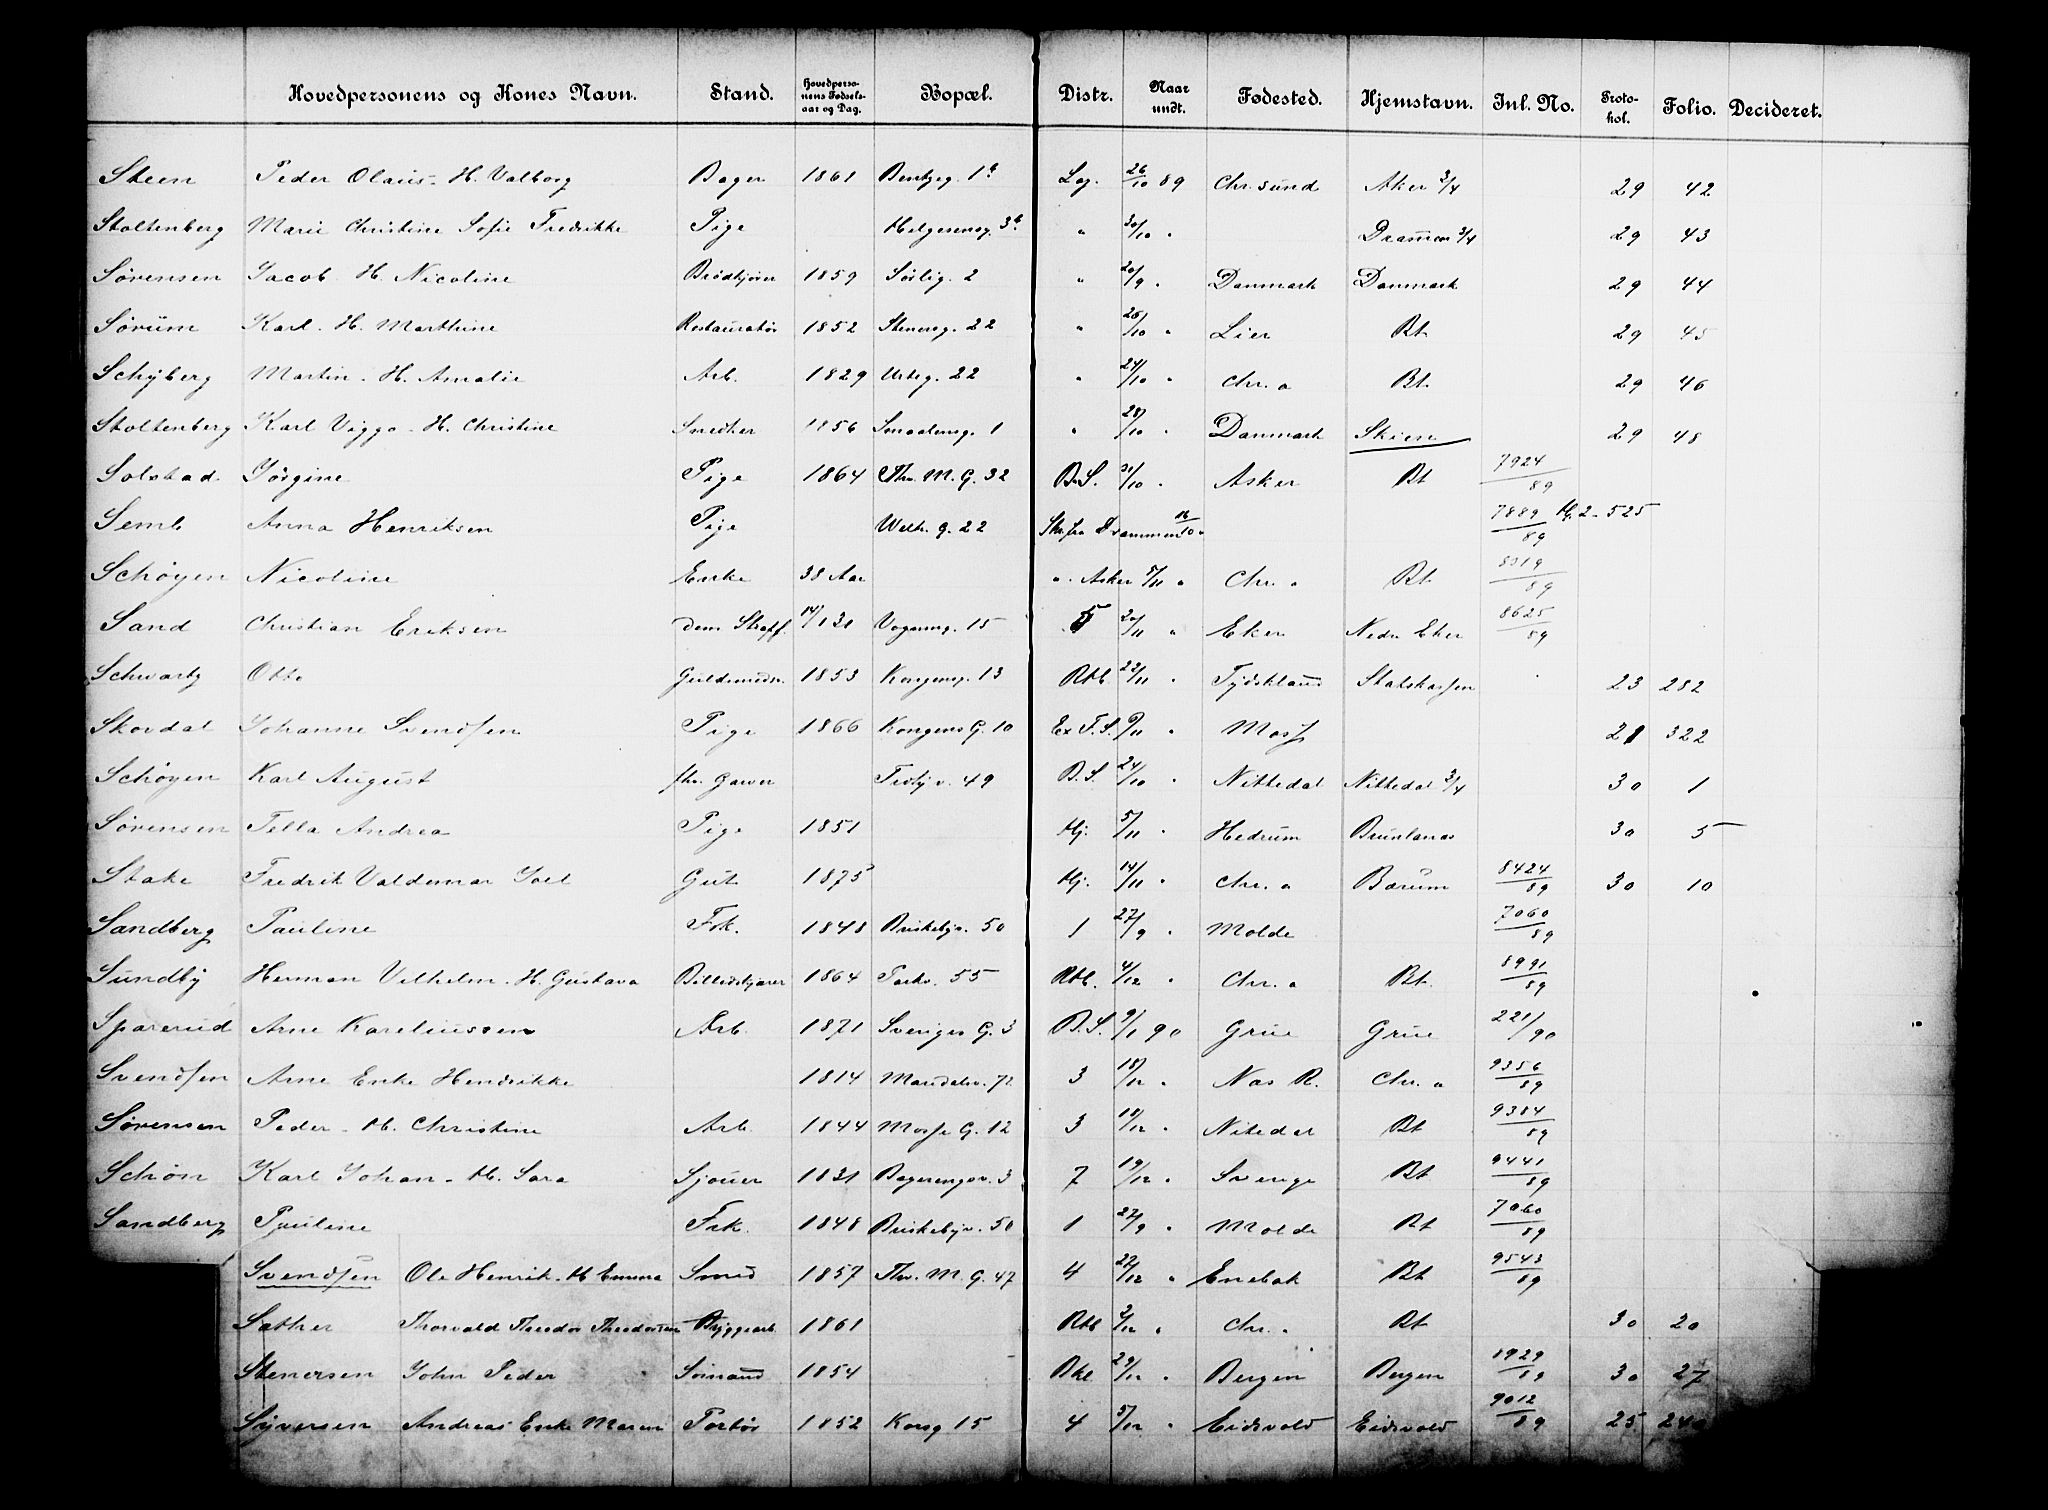 Hovedpersonens og Kones Navn. Stand. Hovedpersonens Fødselsaar og Dag. Bopæl. Distr. Naar undt. Fødested. Hjemstavn. Inl. No. Protokol. Folio. Decideret.
Steen Peder Olaus. H. Valborg Bager 1861 1b Log. 26/10 89 Chr.sund Aker 3/4 29 42
Stoltenberg Marie Christine Sofie Fredrikke Pige Helgesensg. 3b " 30/10 " Drammen 3/4 29 43
Sørensen Jacob. H. Nicoline Brødkjører 1859 Sørlig. 2 " 20/9 " Danmark Danmark 29 44
Sørum Karl. H. Marthine Restauratør 1852 Stenersg. 22 " 26/10 " Lier Bt 29 45
Schyberg Martin. H. Amalie Arb. 1829 Urteg. 22 " 24/10 " Chr.a Bt. 29 46
Stoltenberg Karl Viggo. H. Christine Snedker 1856 Smaalensg. 1 " 28/10 " Danmark Skien 29 48
Solstad Jørgine Pige 1864 Thv. M. G. 32 B.S. 31/10 " Asker Bt 7924/89
Semb Anna Henriksen Pige Welh. g. 22 Skr. fra Drammen 16/10 " 7889/89 2 - 525
Schøyen Nicoline Enke 38 Aar " Asker 5/11 " Chr. a Bt 8319/89
Sand Christian Eriksen dom Straff. 14/1 31 Vognmg. 15 5 20/11 " Eker Nedre Eker 8625/89
Schwartz Otto Guldsmedsv. 1853 Kongensg. 13 Rtb 22/11 " Tydskland Statskassen 23 282
Skovdal Johanne Svendsen Pige 1866 Kongens G. 10 Ex F.S. 9/11 " Moss 21 322
Schøyen Karl August fhv. Garver 49 B.S. 24/10 " Nittedal Nittedal 3/4 30 1
Sørensen Tella Andrea Pige 1851 Hj. 5/11 " Hedrum Brunlanæs 30 5
Stake Fredrik Valdemar Joel Gut 1875 Hj. 14/11 " Chr. a Bærum 8424/89 30 10
Sandberg Pauline Frk. 1848 Briskebyv. 50 1 27/9 " Molde 7060/89
Sundby Herman Vilhelm. H. Gustava Billedskjærer 1864 Parkv. 55 Rtb. 4/12 " Chr. a Bt. 8991/89
Sparerud Arne Kareliussen Arb. 1871 Sveriges G. 3 B.S. 9/1 90 Grue Grue 221/90
Svendsen Arne Enke Hendrikke 1814 Maridalsv. 72 3 18/12 " Næs R. Chr. a 9356/89
Sørensen Peder. H. Christine Arb. 1844 Mosse G. 12 3 18/12 " Nitedal Bt 9384/89
Schiøn Karl Johan. H. Sara Sjouer 1831 3 7 19/12 " Sverige Bt 9441/89
Sandberg Pauline Frk. 1848 Briskebyv. 50 1 27/9 " Molde Bt 7060/89
Svendsen Ole Henrik. H Emma Smed 1857 Thv. M. G. 47 4 22/12 " Enebak Bt 9543/89
Sæther Thorvald Theodor Theodorsen Bryggearb. 1861 Rtb 2/12 " Chr. a Bt 30 20
Stenersen John Peder Sømand 1854 Bkl 29/12 " Bergen Bergen 1929/89 30 27
Syversen Andreas Enke Maren Portør 1852 Korsg 15 4 5/12 " Eidsvold Eidsvold 9012/89 25